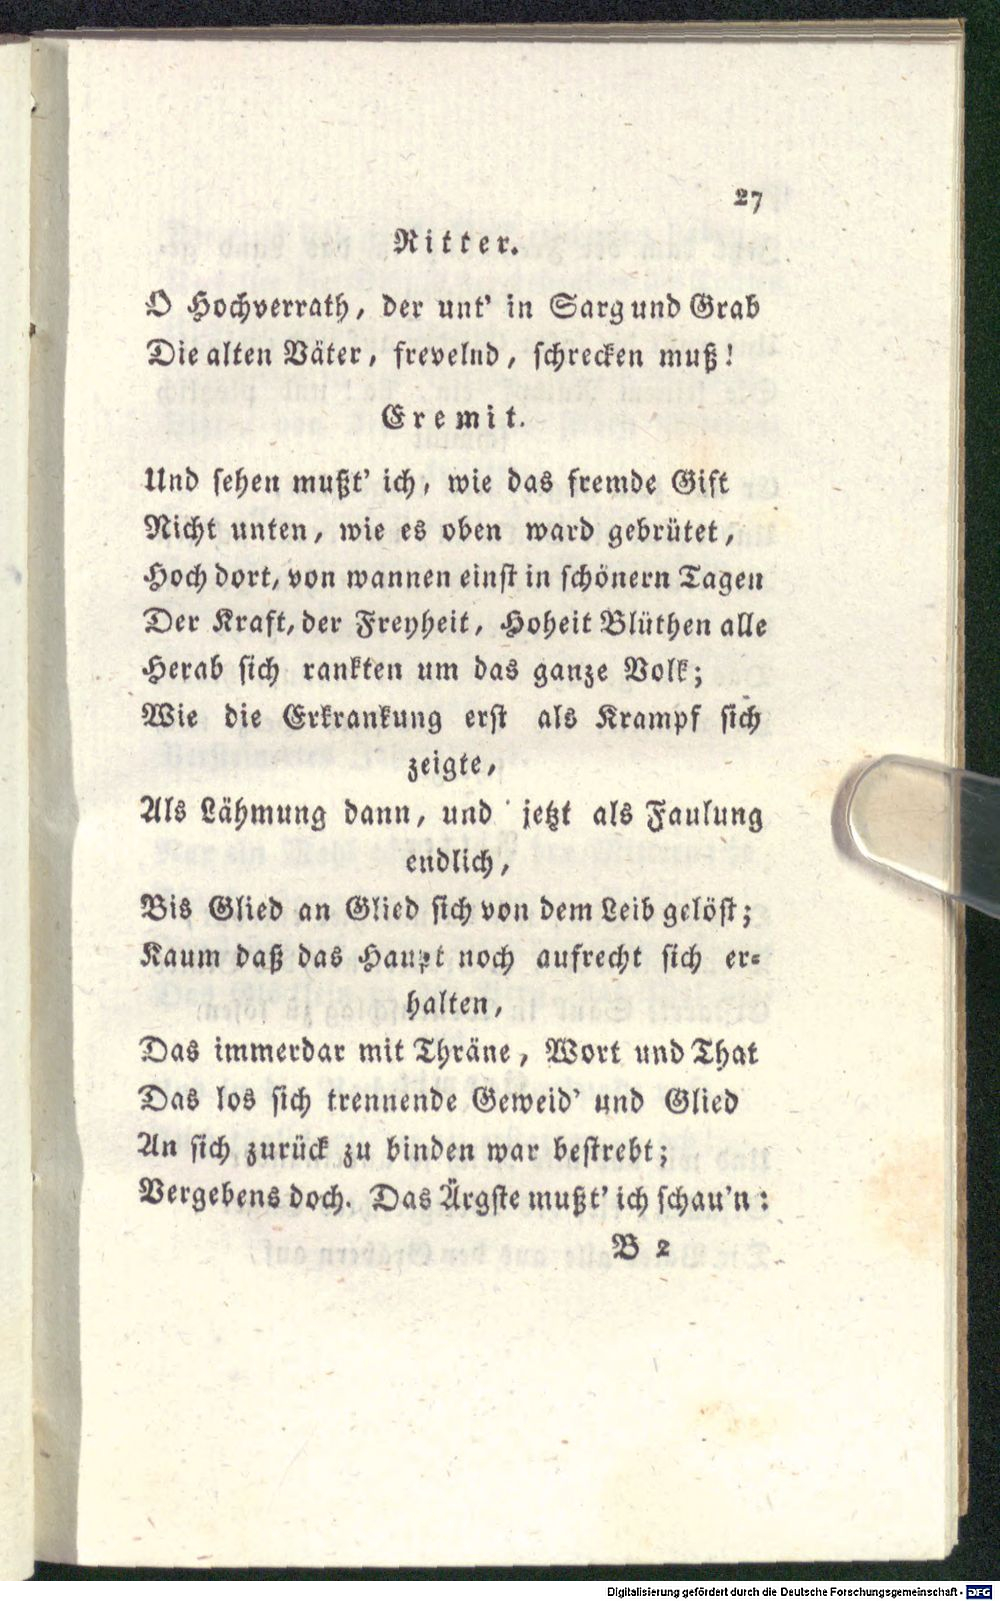 27
Ritter.
O Hochverrath, der unt' in Sarg und Grab
Die alten Väter, frevelnd, schrecken muß!
Eremit.
Und sehen mußt' ich, wie das fremde Gift
Nicht unten, wie es oben ward gebrütet,
Hoch dort, von wannen einst in schönern Tagen
Der Kraft, der Freyheit, Hoheit Blüthen alle
Herab sich rankten um das ganze Volk;
Wie die Erkrankung erst als Krampf sich
zeigte,
Als Lähmung dann, und jetzt als Faulung
endlich,
Bis Glied an Glied sich von dem Leib gelöst;
Kaum daß das Haupt noch aufrecht sich er-
halten,
Das immerdar mit Thräne, Wort und That
Das los sich trennende Geweid' und Glied
An sich zurück zu binden war bestrebt;
Vergebens doch. Das Ärgste mußt' ich schau'n:
B 2
Digitalisierung gefördert durch die Deutsche Forschungsgemeinschaft - DFG